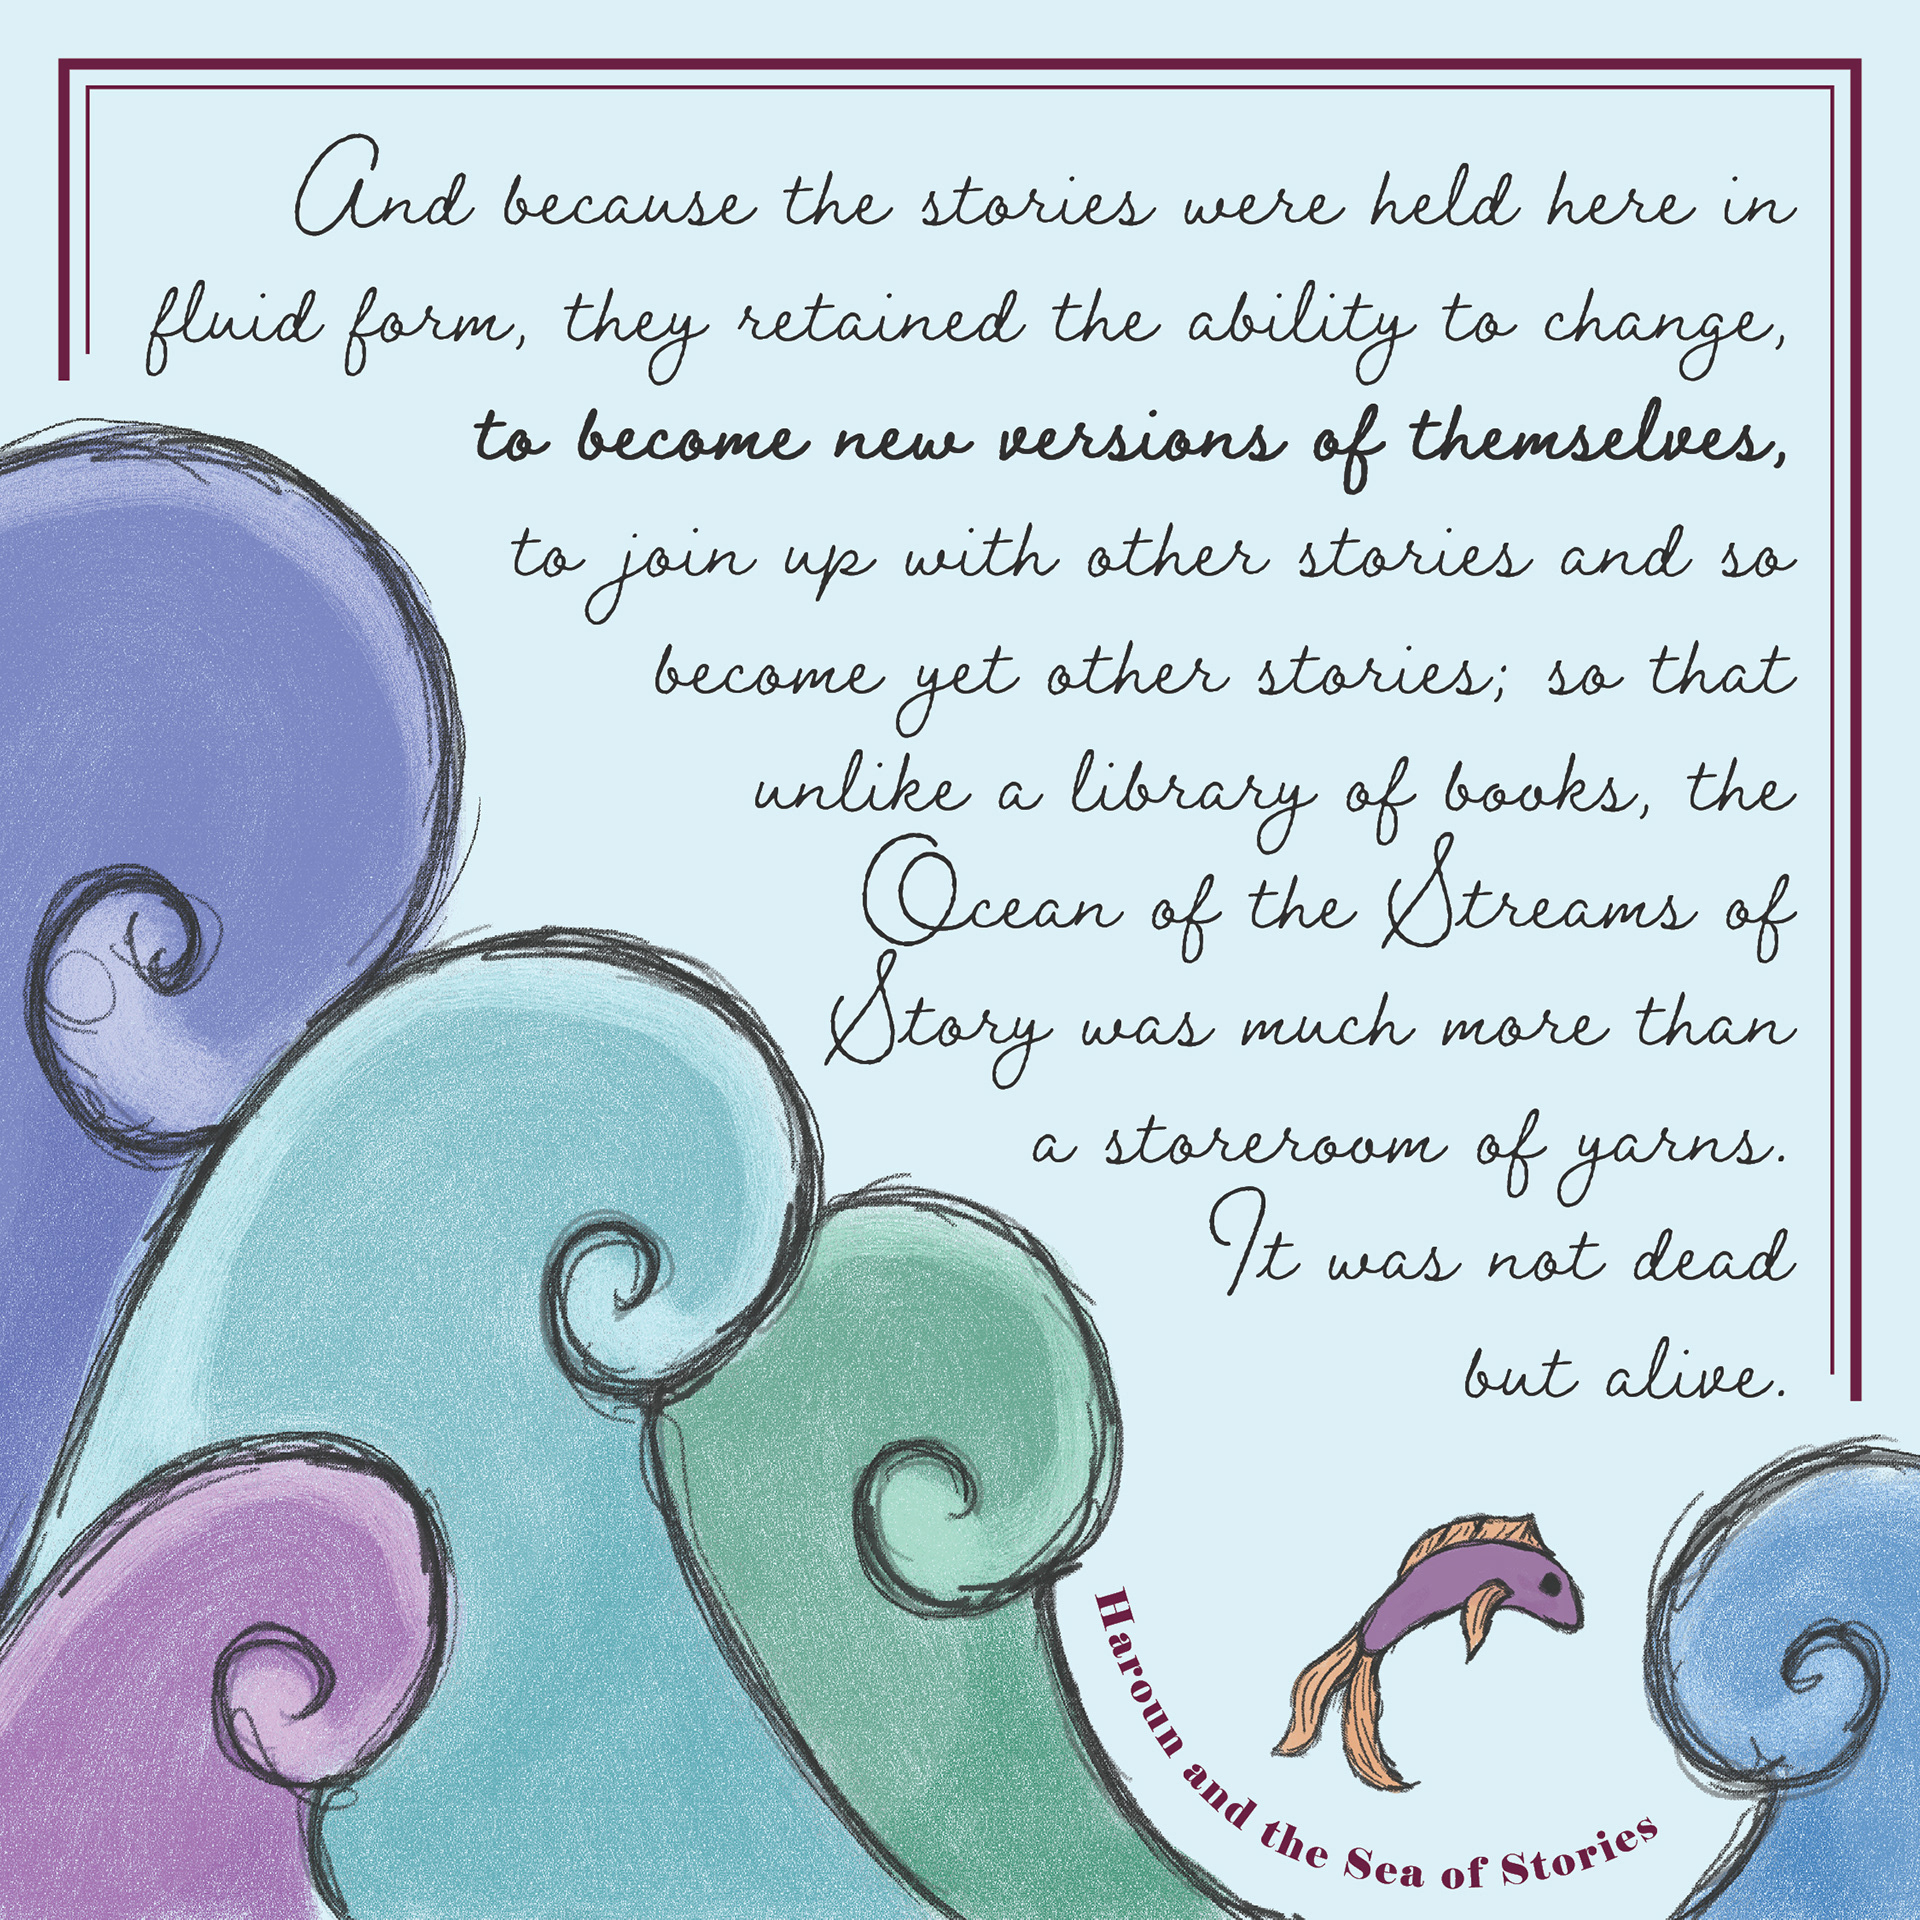 And because the stories were held here in
fluid form, they retained the ability to change,
to become new versions of themselves,
to join up with other stories and so
become yet other stories; so that
unlike a library of books, the
Ocean of the Streams of
Story was much more than
a storeroom of yarns.
It was not dead
but alive.
Haroun and the Sea of Stories